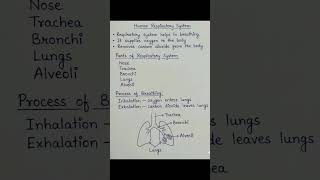 Nose
Trachea
Bronchi
Lungs
Alveoli
Process of B
Inhalation –
Exhalation –
Human Respiratory System
• Respiratory system helps in breathing.
• It supplies oxygen to the body
• Removes carbon dioxide from the body.
Parts of Respiratory System:
Nose
Trachea
Bronchi
Lungs
Alveoli
Process of Breathing:
Inhalation – oxygen enters lungs
Exhalation – carbon dioxide leaves lungs
Trachea
Bronchi
Alveoli
Lungs
lungs
de leaves lungs